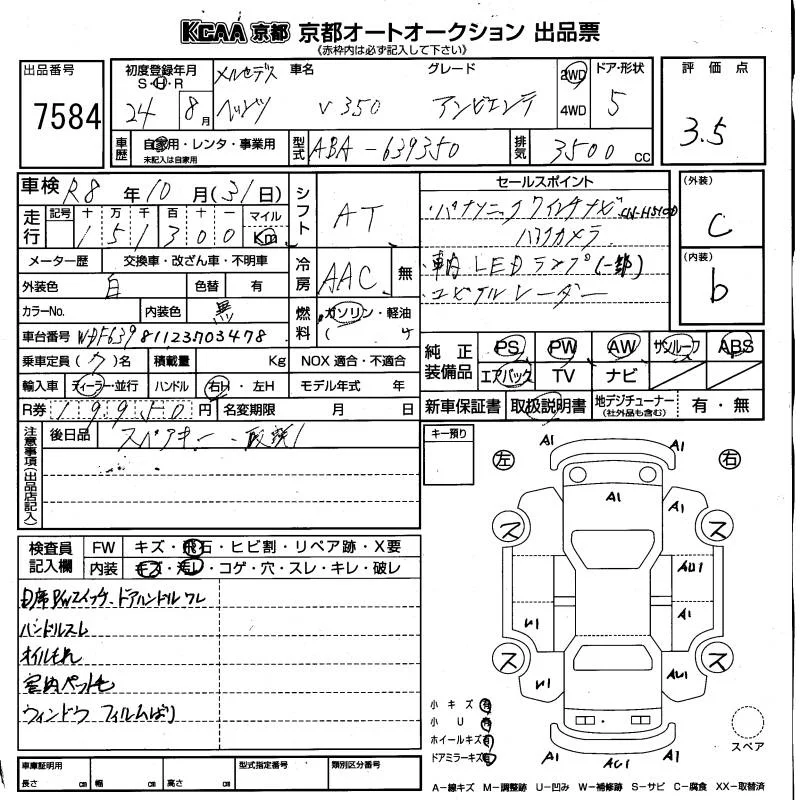 KCAA 京都 京都オートオークション 出品票
《赤枠内は必ず記入して下さい》
出品番号
7584
初度登録年月
S・H・R
24 8月
車名
メルセデス
ベンツ V350
グレード
アンビエンテ
2WD
4WD
ドア・形状
5
評価点
3.5
車歴
自家用・レンタ・事業用
未記入は自家用
型式
ABA-639350
排気
3500 cc
車検 R8 年 10 月 (31日)
走行
記号 十 万 千 百 十 一 マイル
151300 Km
シフト
AT
セールスポイント
・パナソニックワイドナビ CN-HS400D
バックカメラ
・車内LEDランプ(一部)
・ユピテルレーダー
(外装)
C
(内装)
b
メーター歴 交換車・改ざん車・不明車
冷房
AAC 無
外装色 白 色替 有
カラーNo. 内装色 黒
燃料
ガソリン・軽油
( )
車台番号 WDF63981123703478
乗車定員 (7)名 積載量 Kg NOX 適合・不適合
輸入車 ディーラー・並行 ハンドル 右H・左H モデル年式 年
R券 19950円 名変期限 月 日
純正装備品
PS PW AW サンルーフ ABS
エアバック TV ナビ
新車保証書 取扱説明書 地デジチューナー (社外品も含む) 有・無
注意事項(出品店記入)
後日品 スペアキー、取説1
キー預り
左 右
検査員記入欄
FW キズ・飛石・ヒビ割・リペア跡・X要
内装 キズ・汚レ・コゲ・穴・スレ・キレ・破レ
ハンドルスレ
オイルモレ
室内ペット毛
ウィンドウ フィルムばり
A1 A1
A1 A1
ス ス
AU1
A1
ス ス
AU1
A1 AU1 A1
小キズ 有
小U 有
ホイールキズ 有
ドアミラーキズ 有
スペア
車庫証明用
長さ cm 幅 cm 高さ cm
型式指定番号
類別区分番号
A-線キズ M-調整跡 U-凹み W-補修跡 S-サビ C-腐食 XX-取替済